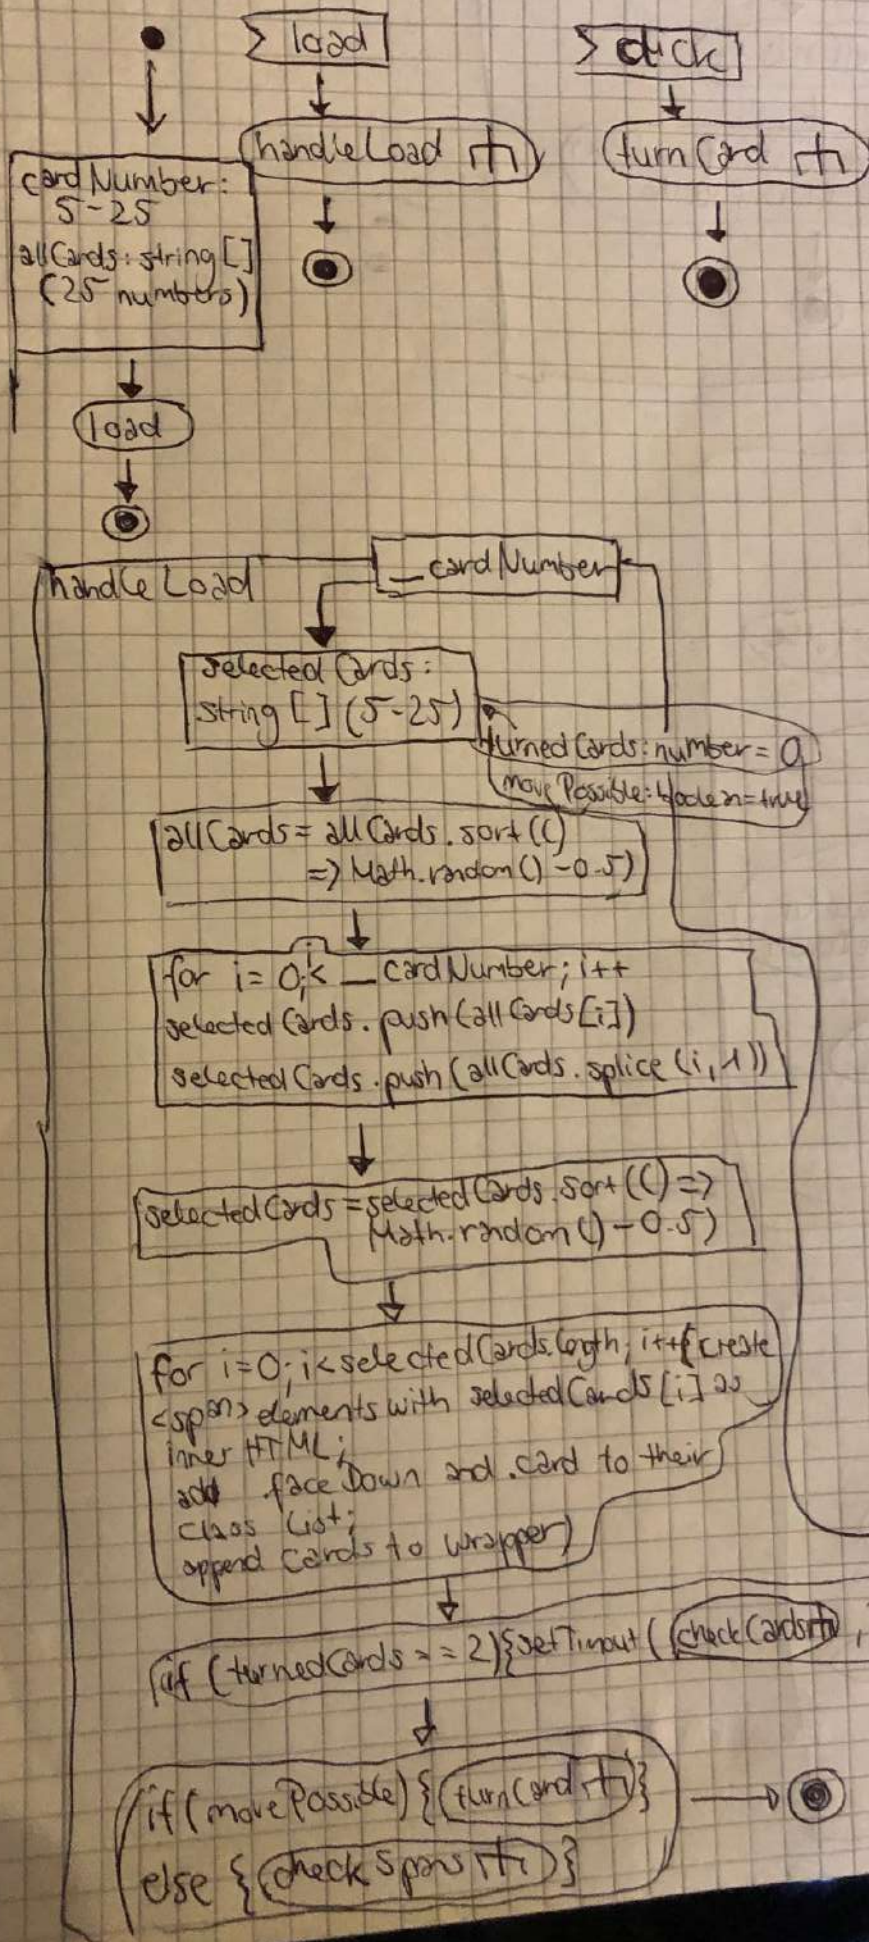 load
click
handleLoad
turnCard
cardNumber:
5-25
allCards: string[]
(25 numbers)
load
handleLoad
_cardNumber
selectedCards:
string[] (5-25)
turnedCards: number = 0
movePossible: boolean=true
allCards = allCards.sort(()
=> Math.random() - 0.5)
for i = 0; i < _cardNumber; i++
selectedCards.push(allCards[i])
selectedCards.push(allCards.splice(i,1))
selectedCards = selectedCards.sort(() =>
Math.random() - 0.5)
for i=0; i<selectedCards.length; i++{create
<span> elements with selectedCards[i] as
inner HTML;
add .faceDown and .card to their
class list;
append cards to wrapper}
if (turnedCards == 2){setTimout(checkCards,
if (movePossible) {turnCard}
else {checkSpans}